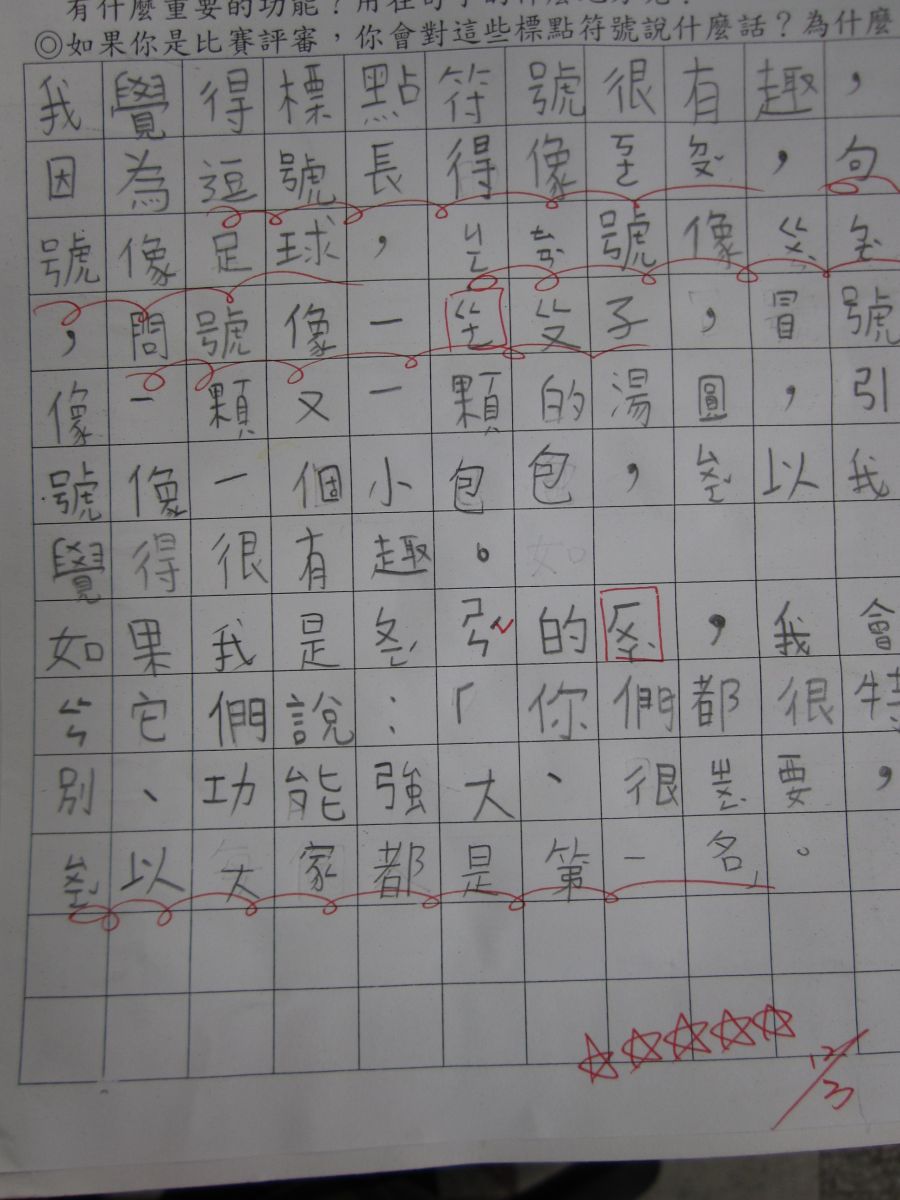 有什麼重要的功能？用在句子的什麼地方呢？
◎如果你是比賽評審，你會對這些標點符號說什麼話？為什麼
我覺得標點符號很有趣，
因為逗號長得像ㄎㄜㄉㄡˇ，句
號像足球，號像
，問號像一子，冒號
像一顆又一顆的湯圓，引
號像一個小包包，ㄙㄨㄛˇ以我
覺得很有趣。
如果我是的，我會
它們說：「你們都很特
別、功能強大、很ㄓㄨㄥˋ要，
ㄙㄨㄛˇ以大家都是第一名」。
12/3